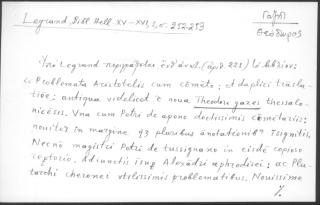 Legrand, Bibl. Hell. XV-XVI, 3, σ. 252-253
Γαζῆς
Θεόδωρος
Legrand περιγράφεται
Problemata Aristotelis cum cōmēto: et duplici trāsla-
tiōe: antiqua videlicet & noua Theodori gazes thessalo-
nicēsis. Una cum Petri de apono doctissimis cōmētariis:
nouiter in margine pluribus ānotationibꝰ īsignitis.
Necnō magistri Petri de tussignano in eisdē copioso
reptorio. Adiunctis Alexādri aphrodisei: ac Plu-
tarchi cheronei vtilissimis problematibus. Nouissime
%.